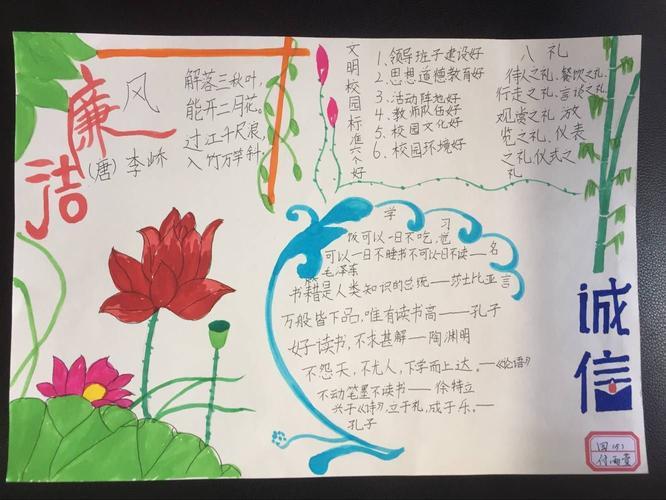 廉洁
风
(唐)李峤
解落三秋叶,
能开二月花。
过江千尺浪,
入竹万竿斜。
文明校园标准六个好
1、领导班子建设好
2、思想道德教育好
3、活动阵地好
4、教师队伍好
5、校园文化好
6、校园环境好
八礼
待人之礼、餐饮之礼、
行走之礼、言谈之礼、
观赏之礼、游
览之礼、仪表
之礼、仪式之
礼
学习名言
饭可以一日不吃,觉
可以一日不睡书不可以一日不读——
毛泽东
书籍是人类知识的总统——莎士比亚
万般皆下品,唯有读书高——孔子
好读书,不求甚解——陶渊明
不怨天,不尤人,下学而上达。——《论语》
不动笔墨不读书——徐特立
兴于《诗》,立于礼,成于乐。——
孔子
诚信